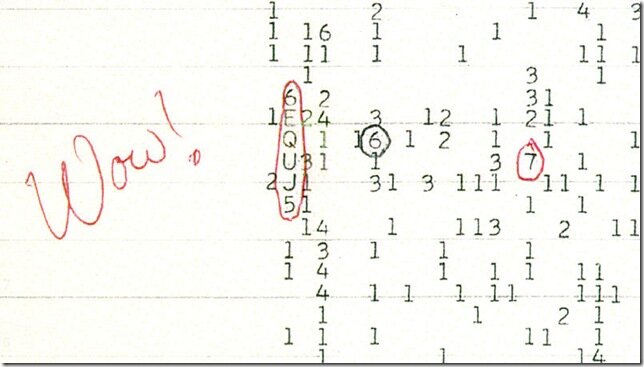 1 2 1 4 3
1 16 1 1
1 11 1 1 11 1
1 3 1
6 2 31
1E24 3 12 1 21 1
Q 1 16 1 2 1 1 1
Wow!
U31 1 3 7 1
2J1 31 3 111 11 1 1
51 1 1
14 1 113 2 11
1 3 1 1 1
1 4 1 1 1 11
4 1 1 1 11 111
1 1 2 1
1 1 1 11 1
1 1 14